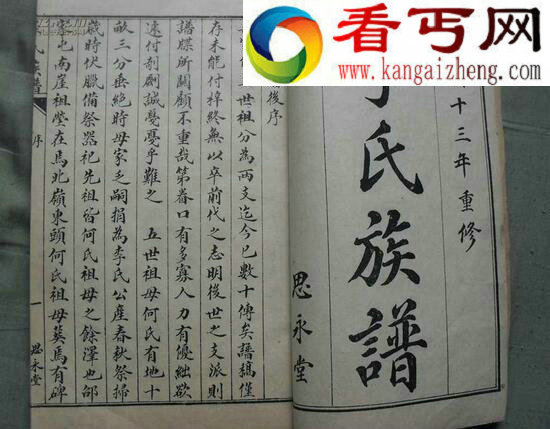 看丐网
www.kangaizheng.com
十三年重修
氏族譜
思永堂
後序
世祖分為兩支迄今已數十傳矣譜稿僅
存未能付梓終無以卒前代之志明後世之支派則
譜牒所關顧不重哉第眷口有多寡人力有優絀欲
速付剞劂誠戛戛乎難之 五世祖母何氏有地十
畝三分垂絕時母家乏嗣捐為李氏公產春秋祭掃
歲時伏臘備祭器祀先祖皆何氏祖母之餘澤也邰
家屯南崖祖塋在馬北嶺東頭何氏祖母葬焉有碑
氏族譜 序 一 思永堂